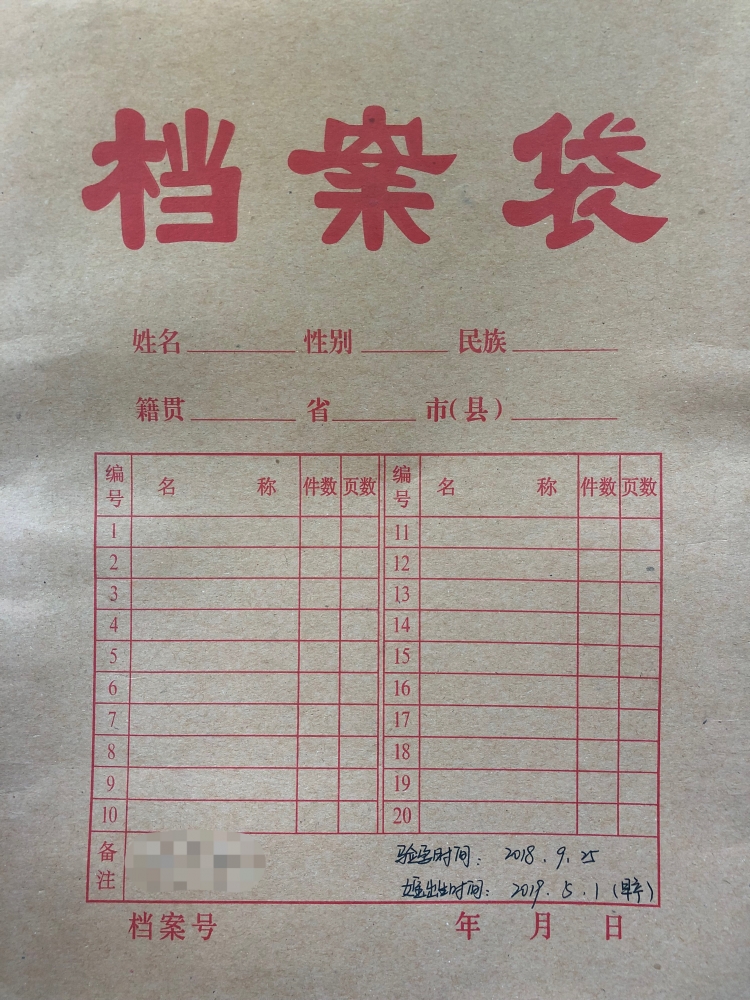 档案袋
姓名 性别 民族
籍贯 省 市(县)
编号 名称 件数 页数 编号 名称 件数 页数
1 11
2 12
3 13
4 14
5 15
6 16
7 17
8 18
9 19
10 20
备注
验孕时间：2018.9.25
出生时间：2019.5.1(早产)
档案号 年 月 日